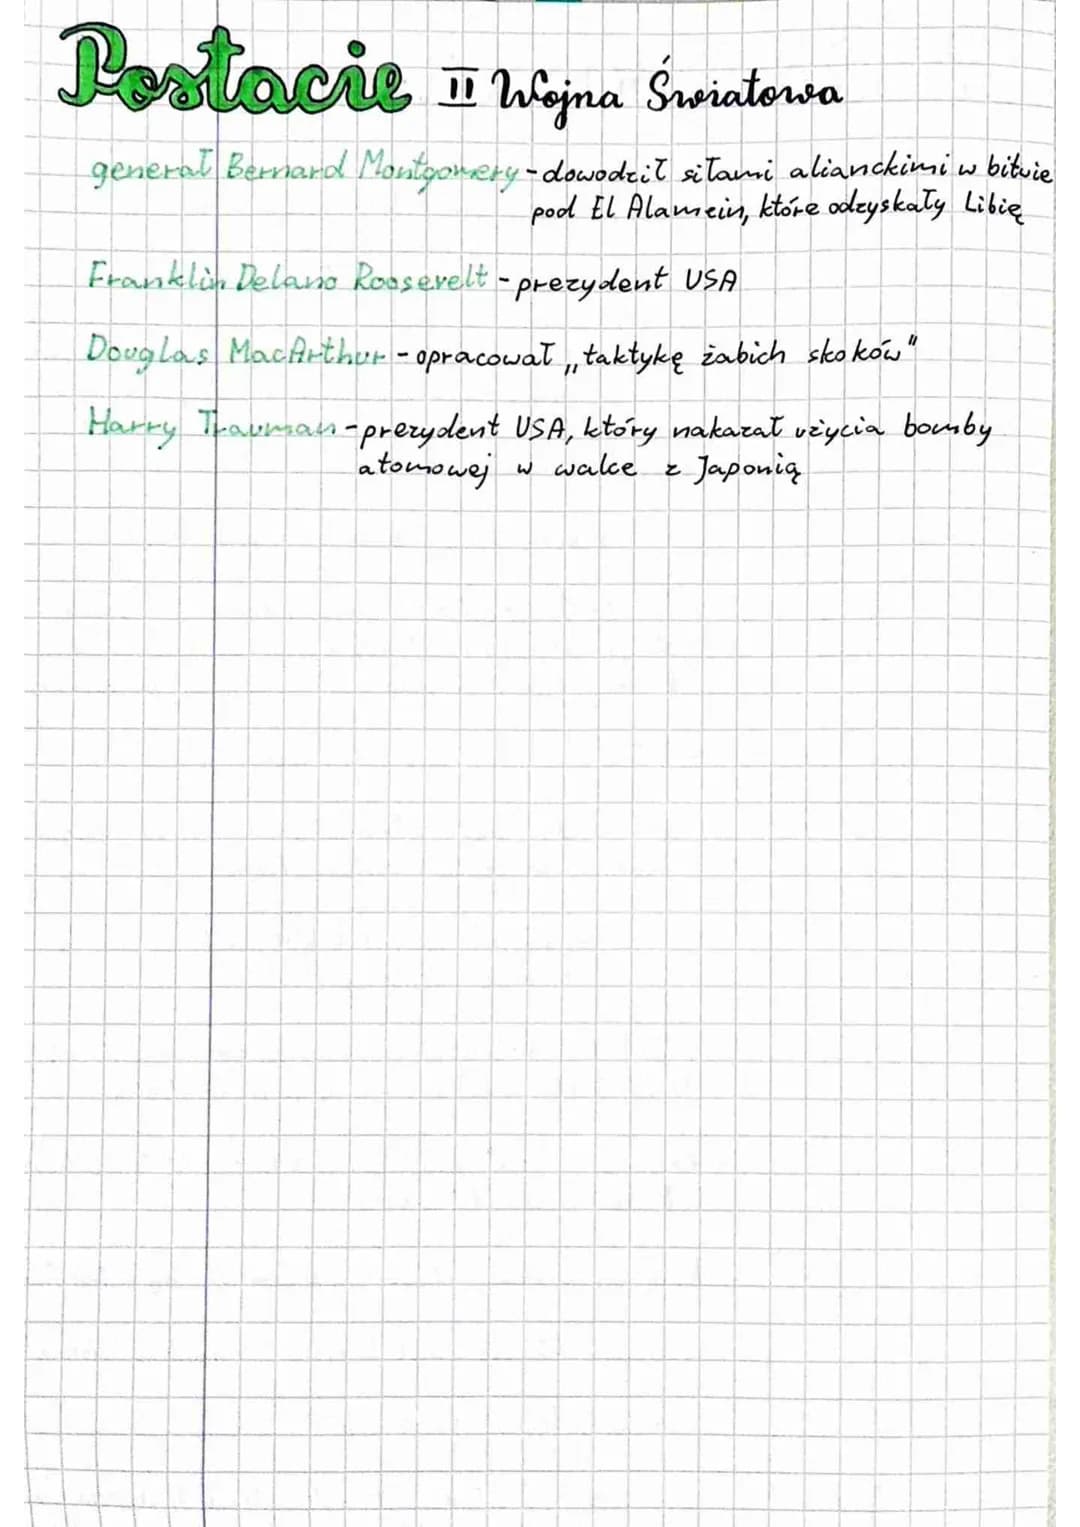 Postacie II Wojna Światowa
generał Bernard Montgomery - dowodził siłami alianckimi w bitwie
pod El Alamein, które odzyskały Libię
Franklin Delano Roosevelt - prezydent USA
Douglas MacArthur - opracował „taktykę żabich skoków"
Harry Trauman - prezydent USA, który nakazał użycia bomby
atomowej w walce z Japonią